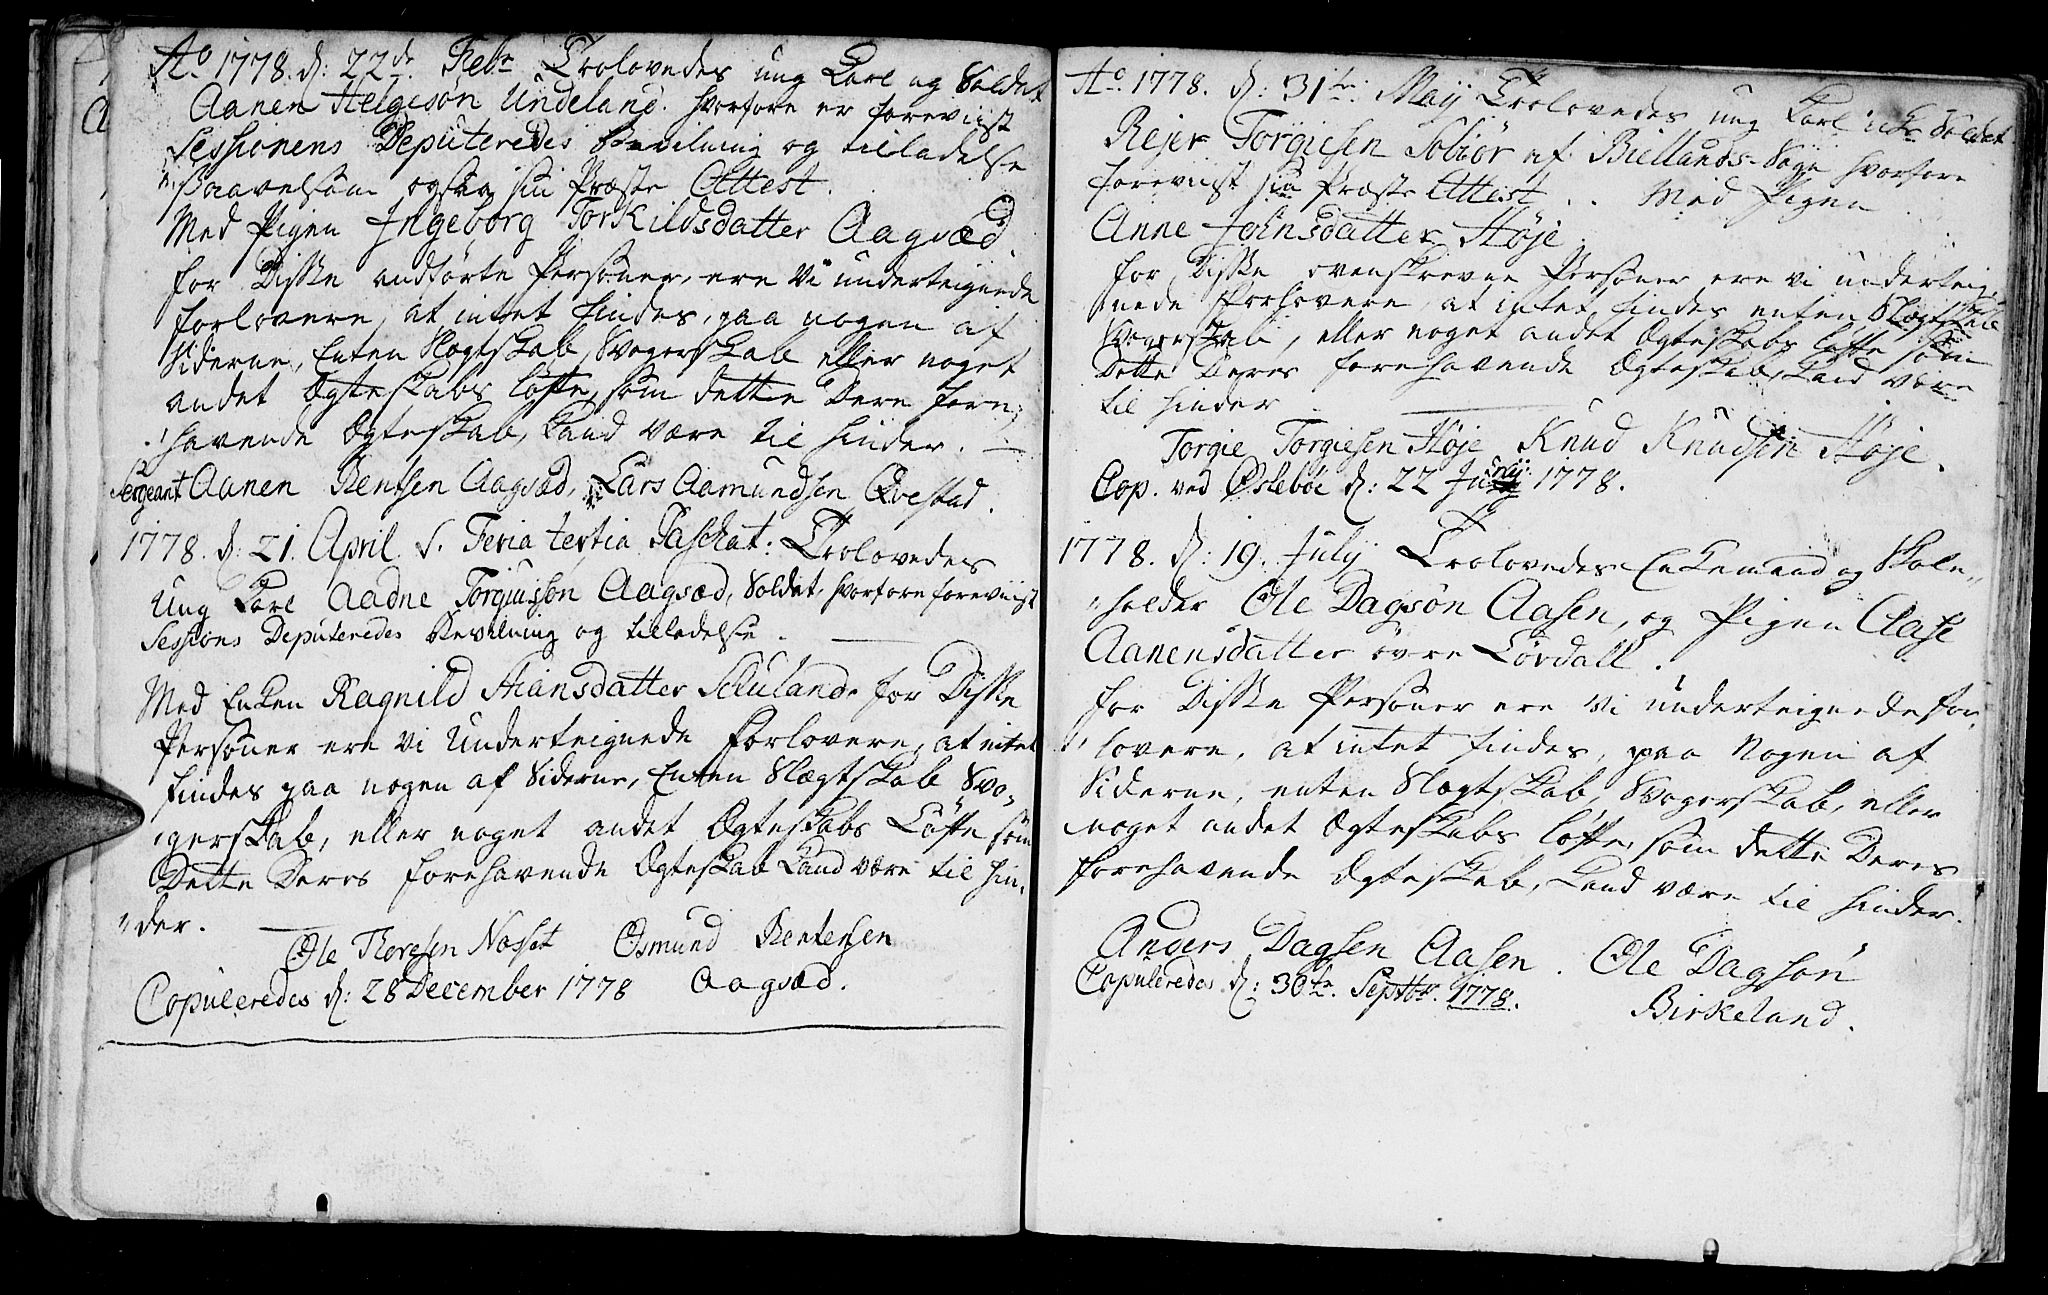 Ao 1778. d: 22de Febr Trolovedes ung Karl og Soldat
Aanen Helgesøn Undeland. hvorfore er foreviist
Sessionens Deputeredes Bevilning og tilladelse
saavelsom ogsaa sin Præstes Attest.
Med Pigen Ingeborg Torkildsdatter Aagsæd.
for Disse anførte Personer, ere Vi underteignede
forlovere, at intet findes, paa nogen af
Siderne, Enten Slægtskab, Svogerskab eller noget
andet Ægteskabs løfte, som dette Dere fore-
havende Ægteskab, Kand være til hinder. —
Sergeant Aanen Bentsen Aagsæd, Lars Aamundsen Qvestad.
1778. d: 21. April. S. Feria tertia Paschat: Trolovedes
Ung Karl Aadne Torgiusøn Aagsæd, Soldat, hvorfore foreviist
Sessions Deputeredes Bevilning og tilladelse.
Med Enken Ragnild Stiansdatter Skuland. for Disse
Personer ere vi Underteignede forlovere, at intet
findes paa nogen af Siderne, Enten Slægtskab Svo-
gerskab, eller noget andet Ægteskabs Løfte som
Dette Deres forehavende Ægteskab Kand være til hin-
der.
Ole Thoresen Næset Osmund Bentsen
Copuleredes d: 28 December 1778 Aagsæd.
Ao 1778. d: 31te Maij Trolovedes ung Karl Soldat
Rejer Torgiesen Sobiør af Biellands Sogn hvorfore
foreviist sin Præstes Attest. Med Pigen
Anne Johnsdatter Høje.
for Disse ovenskrevne Personer ere vi underteig-
nede forlovere, at intet findes enten Slægtskab
Svogerskab, eller noget andet Ægteskabs løfte som
Dette Deres forehavende Ægteskab, Kand være
til hinder
Torgie Torgiesen Høje Knud Knudsen Høje.
Cop. ved Øslebøe d: 22 Junij 1778.
1778. d: 19. Julij Trolovedes Enkemand og Skole-
holder Ole Dagsøn Aasen, og Pigen Aase
Aanensdatter øvre Løvdall.
for Disse Personer ere Vi underteignede for-
lovere, at intet findes, paa Nogen af
Siderne, enten Slægtskab, Svogerskab, eller
noget andet Ægteskabs løfte, som dette Deres
forehavende Ægteskab, Kand være til hinder.
Anders Dagsen Aasen. Ole Dagsøn
Copuleredes d: 30te Septbr. 1778.
Birkeland.